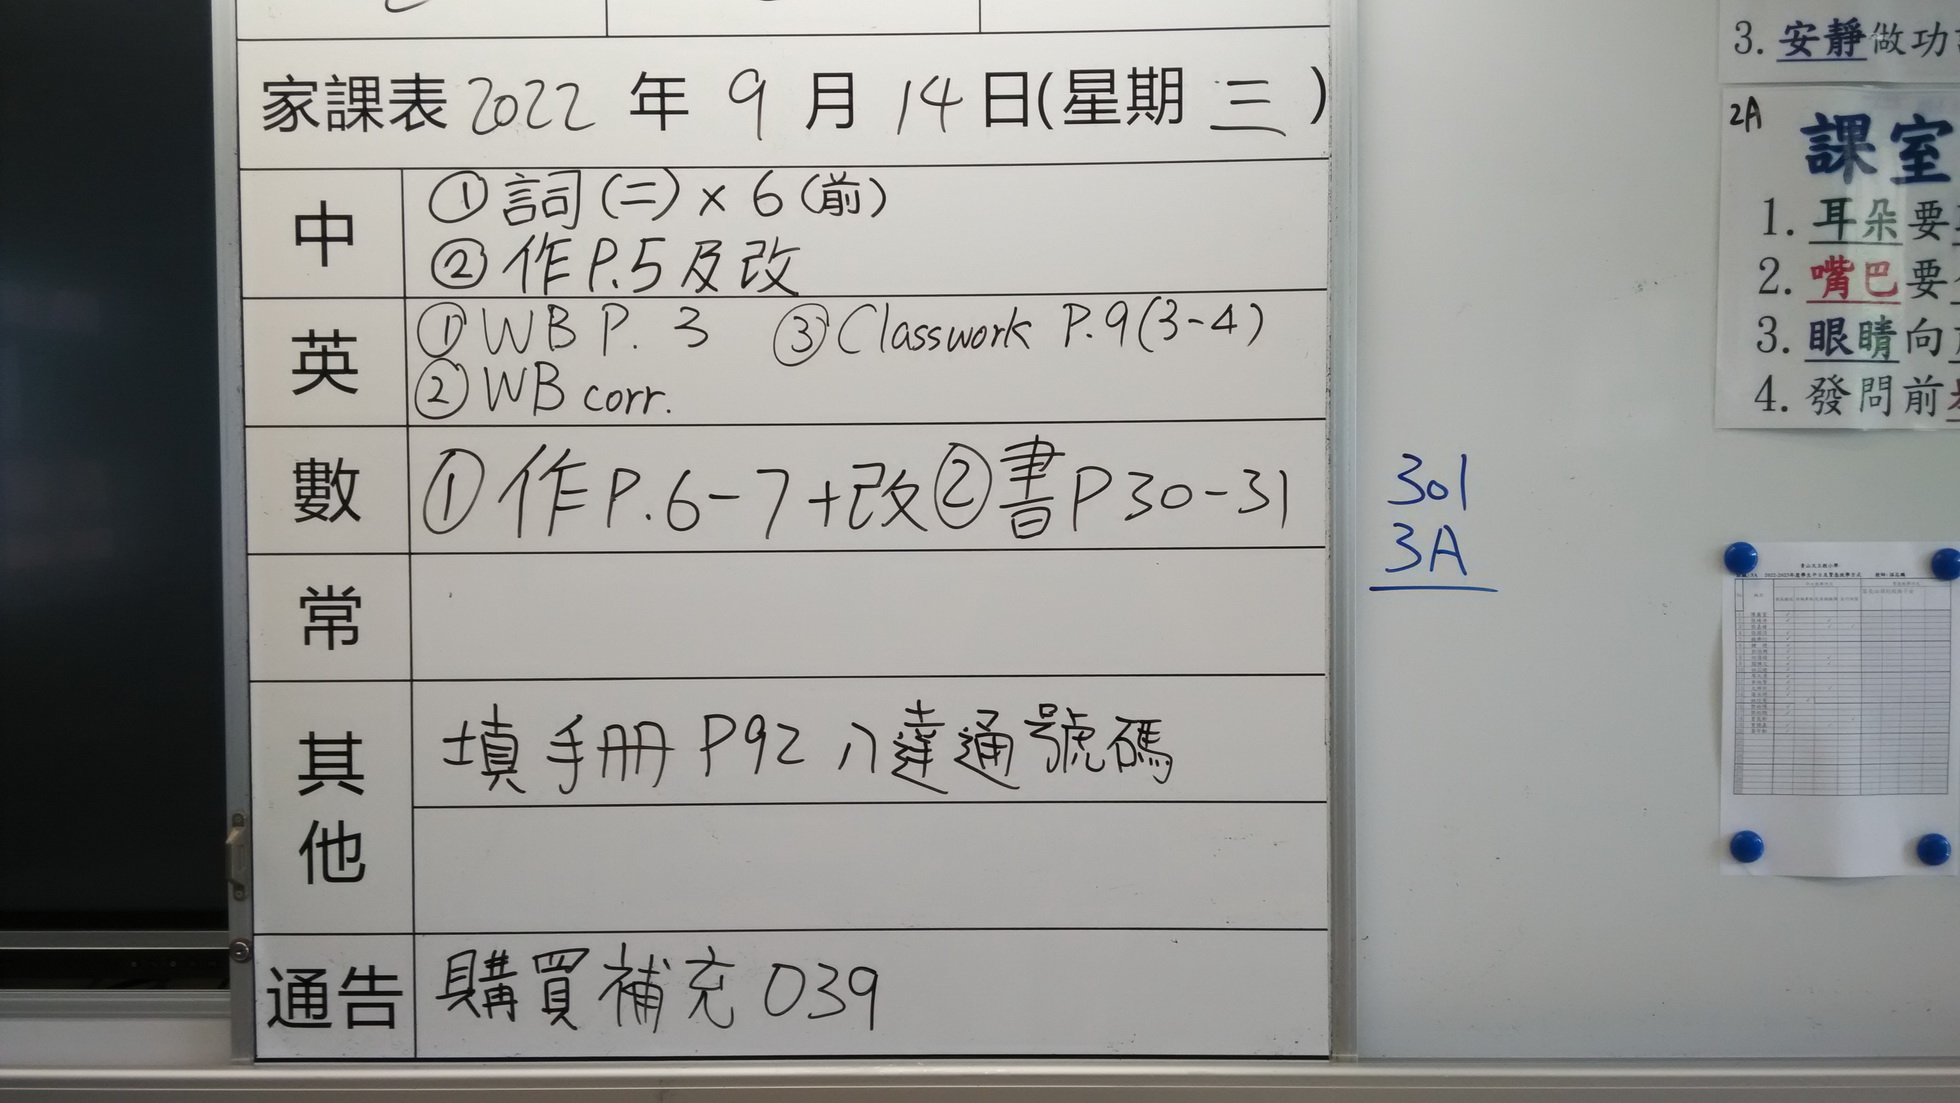 家課表 2022 年 9 月 14 日(星期 三 )
中
① 詞(二) x 6 (前)
② 作 P.5 及改
英
① WB P. 3 ③ Classwork P.9(3-4)
② WB corr.
數
① 作 P.6-7+改 ② 書 P30-31
常
其他
填手冊 P92 八達通號碼
通告
購買補充 039
301
3A
3. 安靜做功
2A
課室
1. 耳朵要
2. 嘴巴要
3. 眼睛向
4. 發問前